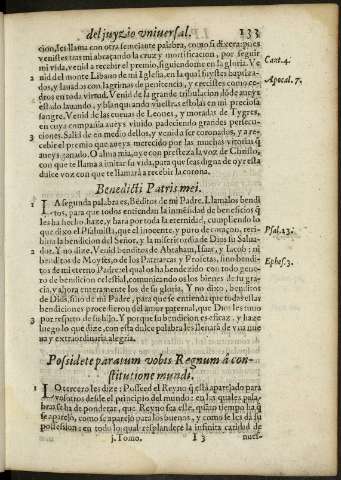 del juyzio vniuersal. 133
cion, les llama con otra semejante palabra, como si dixera: pues
venistes tras mi abraçando la cruz y mortificacion, por seguir
mi vida, venid a recebir el premio, siguiendome en la gloria. Ve
2 nid del monte Libano de mi Iglesia, en la qual fuystes baptiza- Cant. 4.
dos, y lauados con lagrimas de penitencia, y crecistes como ce-
dros en toda virtud. Venid de la grande tribulacion dõde aueys Apocal. 7.
estado lauando, y blanqueando vuestras estolas en mi preciosa
sangre. Venid de las cueuas de Leones, y moradas de Tygres,
en cuya compañia aueys viuido padeciendo grandes persecu-
3 ciones. Salid de en medio dellos, y venid a ser coronados, y a re-
cebir el premio que aueys merecido por las muchas vitorias q̃
aueys ganado. O alma mia, oye con presteza la voz de Christo,
con que te llama a imitar su vida, para que seas digna de oyr esta
dulce voz con que te llamará a recebir la corona.
Benedicti Patris mei.
1 LA segunda palabra es, Bẽditos de mi Padre. Llamalos bendi
tos, para que todos entiendan la inmẽsidad de beneficios q̃
les ha hecho hasta aqui, y hara por toda la eternidad, cumpliendo lo
que dixo el Psalmista, que el innocente, y puro de coraçon, reci- Psal. 23.
biria la bendicion del Señor, y la misericordia de Dios su Salua-
dor. Y no dize, Venid benditos de Abraham, Isaac, y Iacob: ni
2 benditos de Moyses, o de los Patriarcas y Profetas, sino bendi- Ephes. 3.
tos de mi eterno Padre: el qual os ha bendezido con todo gene-
ro de bendicion celestial, comunicandoos los bienes de su gra-
cia, y ahora enteramente los de su gloria. Y no dixo, benditos
de Dios, sino de mi Padre, para que se entienda que todas estas
bendiciones procedieron del amor paternal, que Dios les tuuo
3 por respeto de su hijo. Y porque su bendicion es eficaz, y haze
luego lo que dize, con esta dulce palabra les llenará de vna nue
ua y extraordinaria alegria.
Possidete paratum vobis Regnum à con-
stitutione mundi.
1 LO tercero les dize: Posseed el Reyno q̃ està aparejado para
vosotros desde el principio del mundo: en las quales pala-
bras se ha de ponderar, que Reyno sea este, quanto tiempo ha q̃
se aparejó, como se aparejó para los buenos, y como se les dá su
possession: en todo lo qual resplandece la infinita caridad de
j. Tomo. I 3 nues-